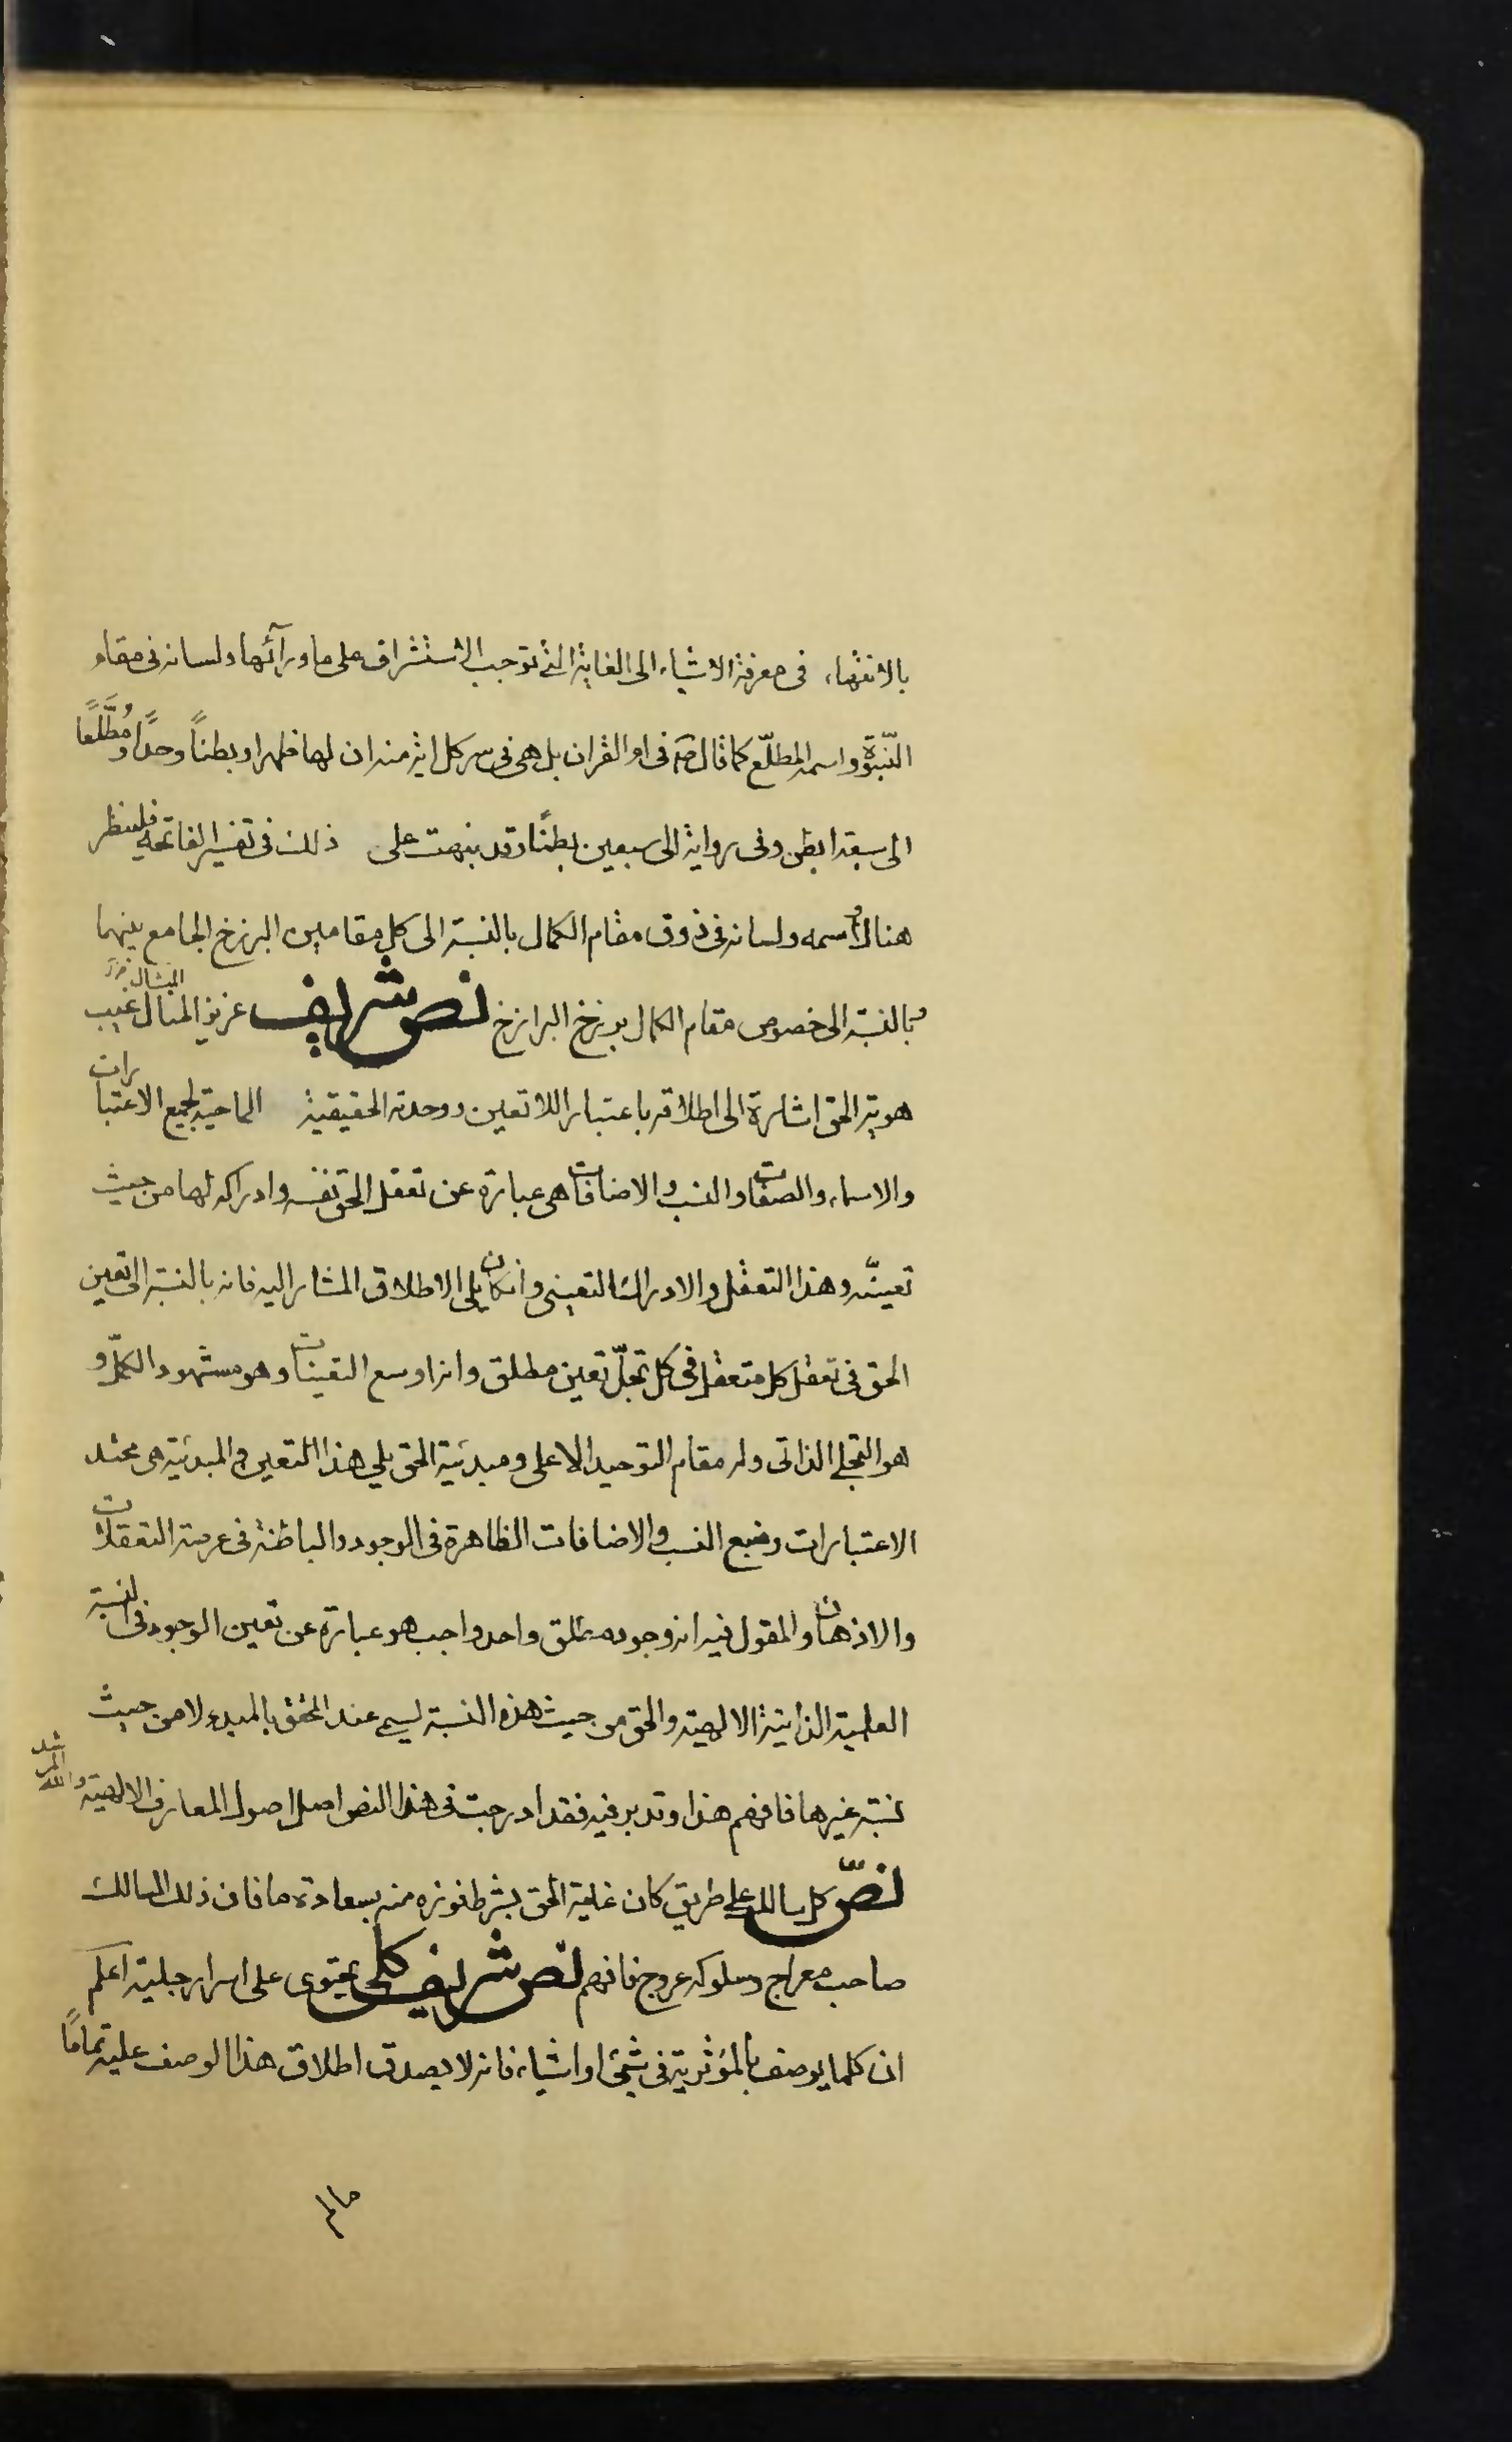 بالانتهاء فى معرفة الاشياء الى الغاية التى توجب الاستشراف على ما ورآئها ولسانه فى مقام
النّبوّة واسمه المطلّع كما قال صم فى امر القران بل هى فى سر كل اية منه ان لها ظهرا وبطناً وحدًا ومُطَّلَعًا
الى سبعة ابطن وفى رواية الى سبعين بطنًا وقد نبهت على ذلك فى تفسير الفاتحة فلينظر
هناك واسمه ولسانه فى ذوق مقام الكمال بالنسبة الى كل مقامين البرزخ الجامع بينهما
وبالنسبة الى خصوص مقام الكمال برزخ البرازخ نص شريف عزيز المنال غيب
هوية الحق اشارة الى اطلاقه باعتبار اللاتعين ووحدته الحقيقية الماحية لجميع الاعتبارات
والاسماء والصفات والنسب والاضافات هى عبارة عن تعقل الحق نفسه وادراكه لها من حيث
تعينّه وهذا التعقل والادراك التعينى وان كان يلى الاطلاق المشار اليه فانه بالنسبة الى تعين
الحق فى تعقل كل متعقل فى كل تجلّ تعين مطلق وانه اوسع التعينات وهو مشهود الكمّل و
هو التجلى الذاتى وله مقام التوحيد الاعلى ومبدئية الحق يلي هذا التعين والمبدئية هى محتد
الاعتبارات ومنبع النسب والاضافات الظاهرة فى الوجود والباطنة فى عرصة التعقلات
والاذهان والمقول فيه انه وجود مطلق واحد واجب هو عبارة عن تعين الوجود فى النسبة
العلمية الذاتية الالهية والحق من حيث هذه النسبة يسمى عند المحقق بالمبدء لا من حيث
نسبة غيرها فافهم هذا وتدبر فيه فقد ادرجت فى هذا النص اصل اصول المعارف الالهية والله المرشد
نصّ كل سالك على طريق كان غاية الحق بشرط فوزه منه بسعادة ما فان ذلك السالك
صاحب معراج وسلوكه عروج فافهم نص شريف كلى يحتوى على اسرار جلية اعلم
ان كلما يوصف بالمؤثرية فى شىء او اشياء فانه لا يصدق اطلاق هذا الوصف عليه تمامًا
مالم